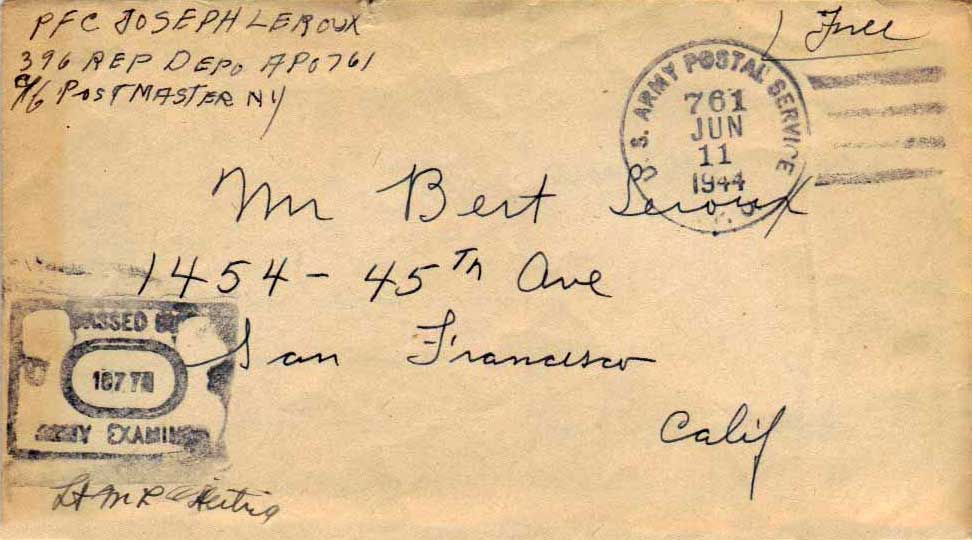 PFC JOSEPH LEROUX
396 REP DEPO APO 761
c/o POSTMASTER NY
Free
U. S. ARMY POSTAL SERVICE
761
JUN
11
1944
Mr Bert Leroux
1454 - 45th Ave
San Francisco
Calif
PASSED BY
ARMY EXAMINER
Lt M L